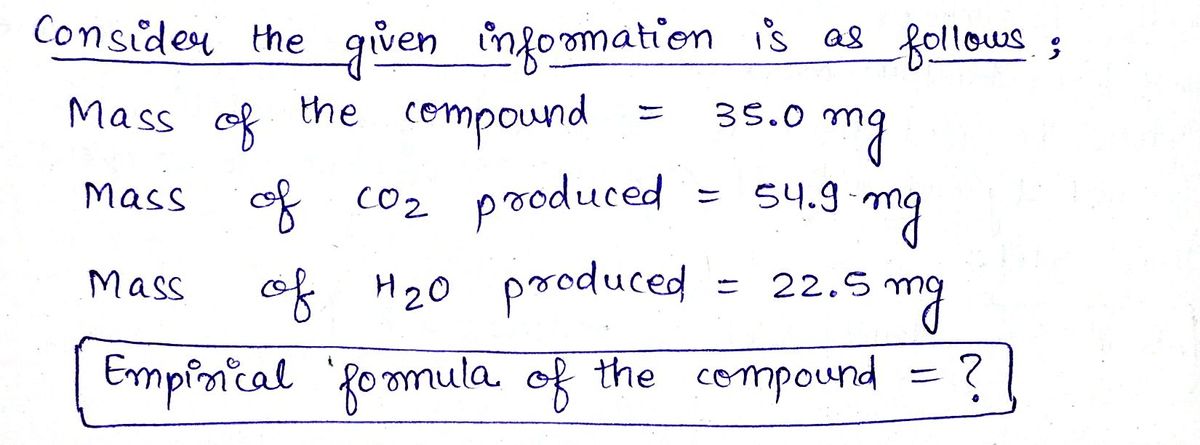 Consider the given information is as follows ;
Mass of the compound = 35.0 mg
Mass of CO2 produced = 54.9 mg
Mass of H2O produced = 22.5 mg
Empirical formula of the compound = ?